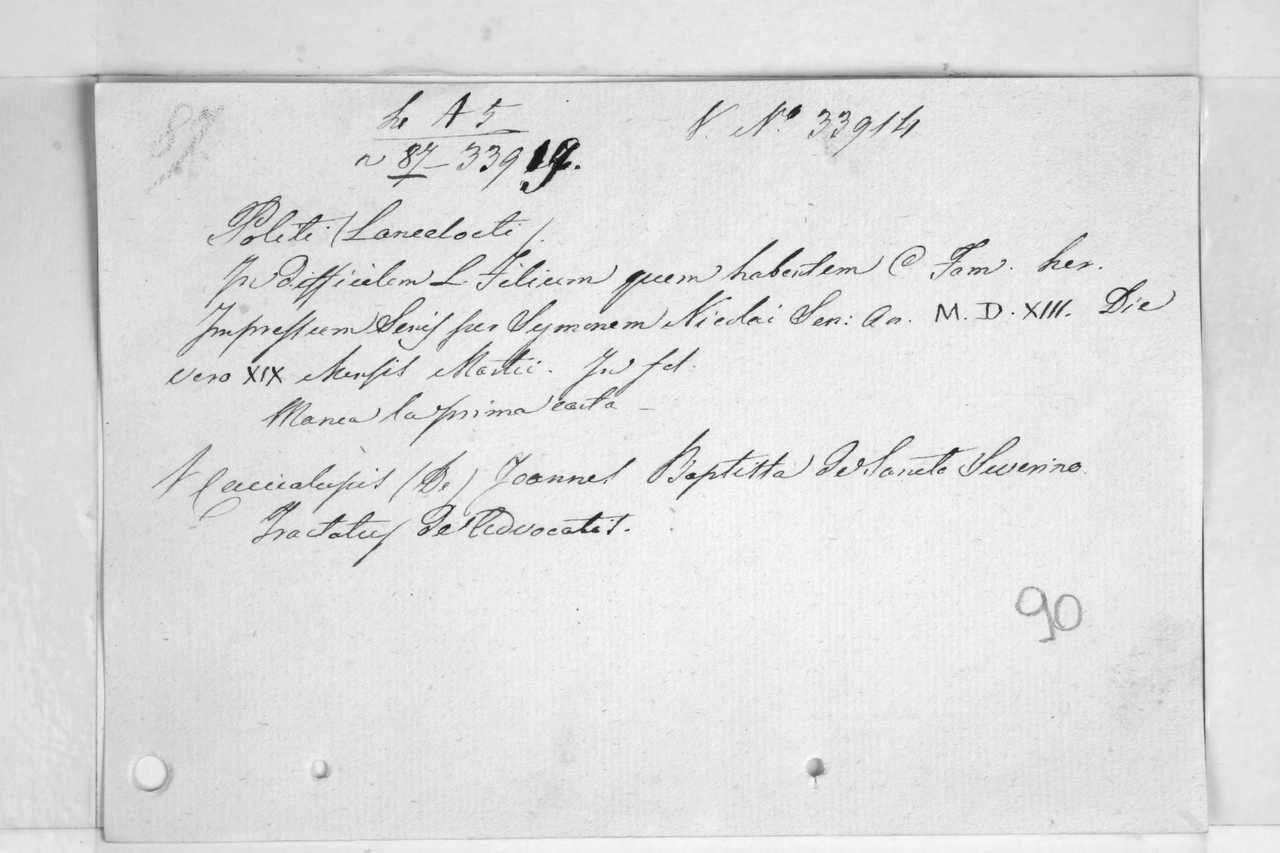 87
h A 5
V. Nº 33914
n 87 — 33919.
Politi (Lancelocti).
In difficilem L Filium quem habentem C Fam. her.
Impressum Senis per Symonem Nicolai Sen: An. M. D. XIII. Die
vero XIX Mensis Martii. In fol.
Manca la prima carta —
Caccialupis (De) Joannes Baptista de Sancto Severino
Tractatus de Advocatis.
90